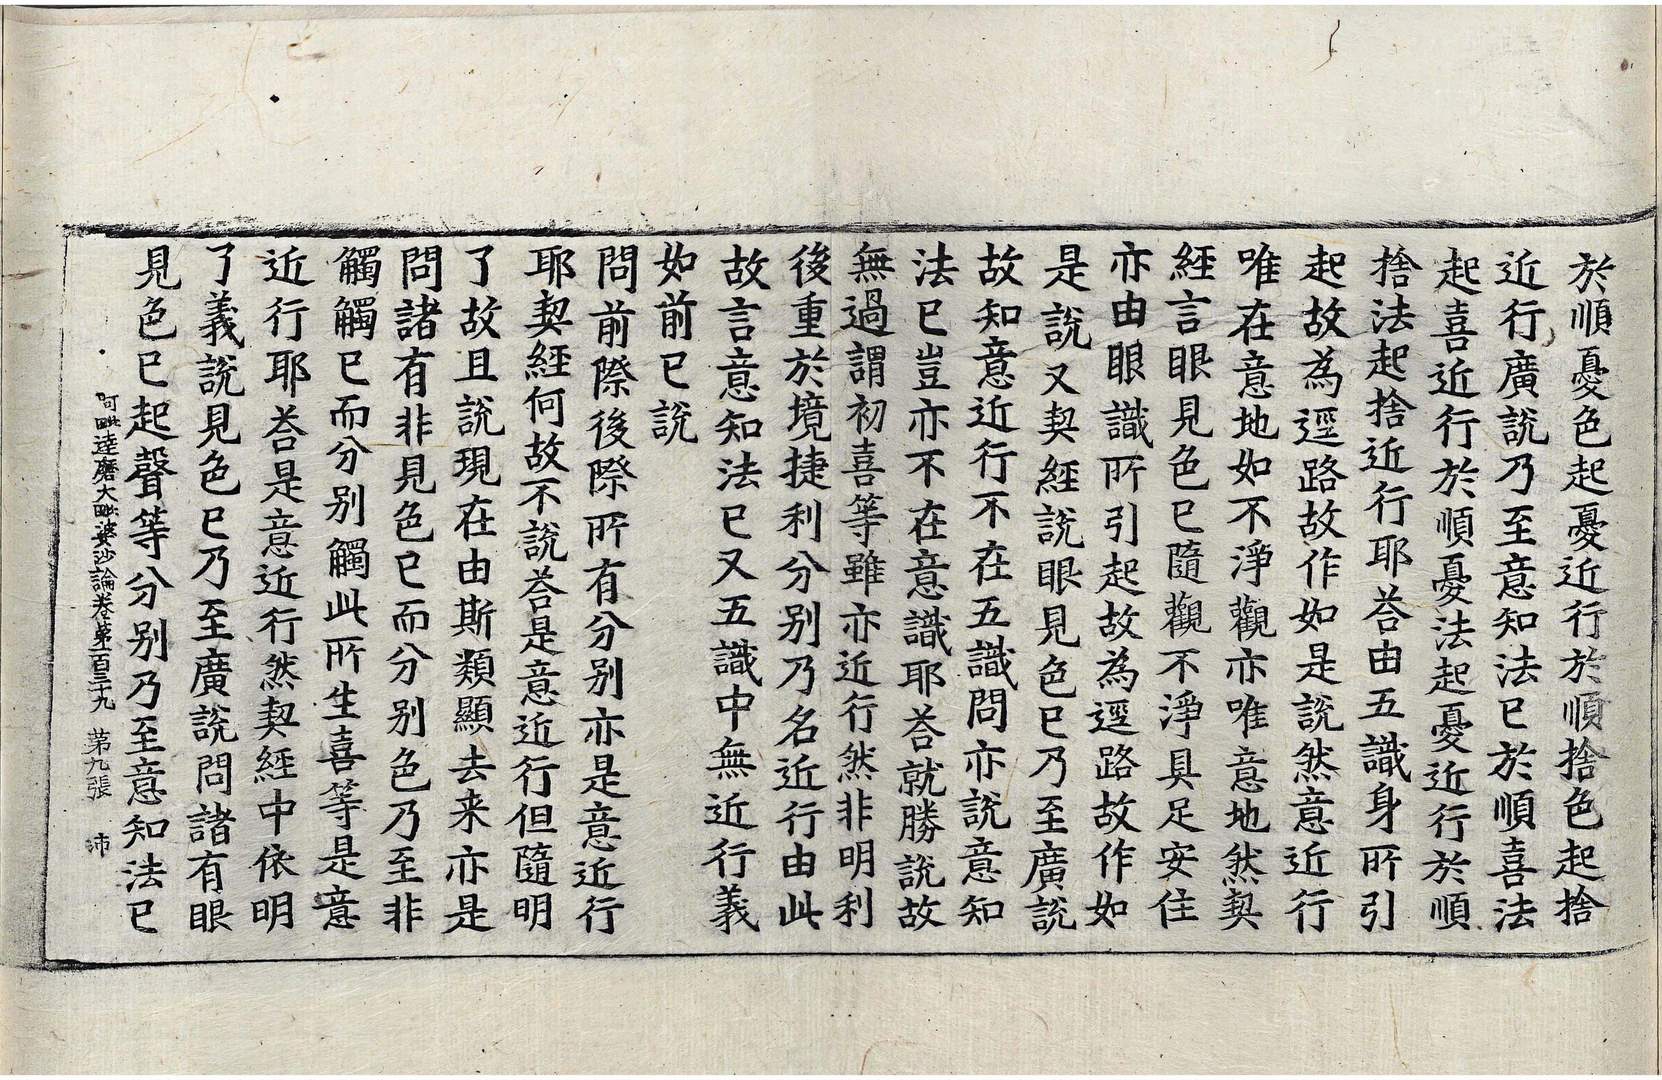 於順憂色起憂近行於順捨色起捨
近行廣說乃至意知法已於順喜法
起喜近行於順憂法起憂近行於順
捨法起捨近行耶荅由五識身所引
起故為逕路故作如是說然意近行
唯在意地如不淨觀亦唯意地然契
經言眼見色已隨觀不淨具足安住
亦由眼識所引起故為逕路故作如
是說又契經說眼見色已乃至廣說
故知意近行不在五識問亦說意知
法已豈亦不在意識耶荅就勝說故
無過謂初喜等雖亦近行然非明利
後重於境捷利分別乃名近行由此
故言意知法已又五識中無近行義
如前已說
問前際後際所有分別亦是意近行
耶契經何故不說荅是意近行但隨明
了故且說現在由斯類顯去来亦是
問諸有非見色已而分別色乃至非
觸觸已而分別觸此所生喜等是意
近行耶荅是意近行然契經中依明
了義說見色已乃至廣說問諸有眼
見色已起聲等分別乃至意知法已
阿毗達磨大毗婆沙論卷第一百三十九 第九張 沛